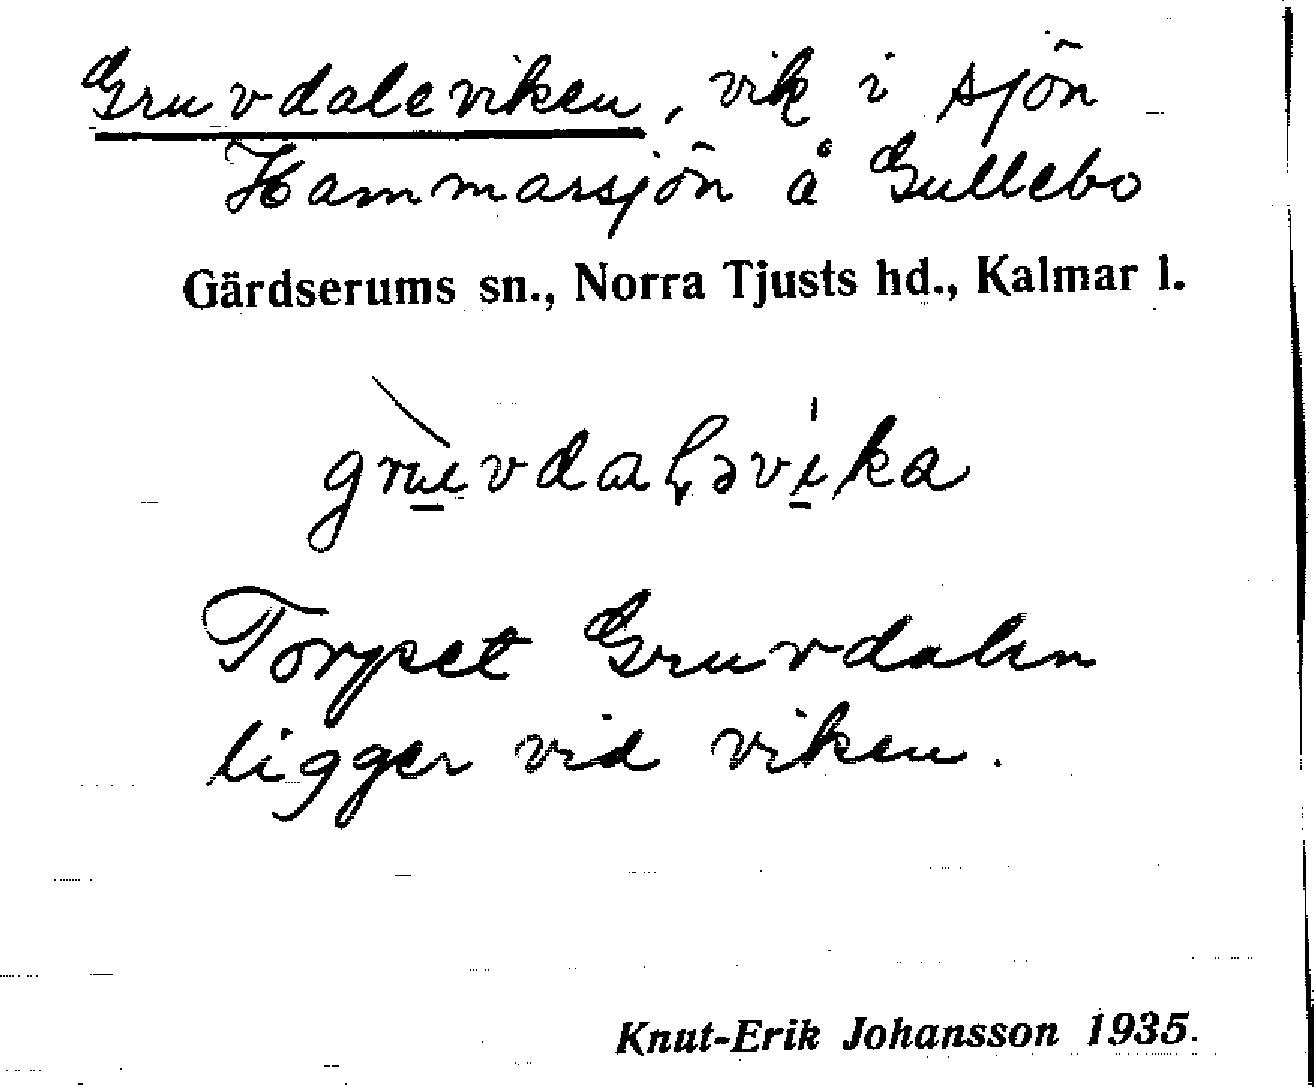 Gruvdaleviken, vik i sjön
Hammarsjön å Gullebo
Gärdserums sn., Norra Tjusts hd., Kalmar l.
Torpet Gruvdalen
ligger vid viken.
Knut-Erik Johansson 1935.